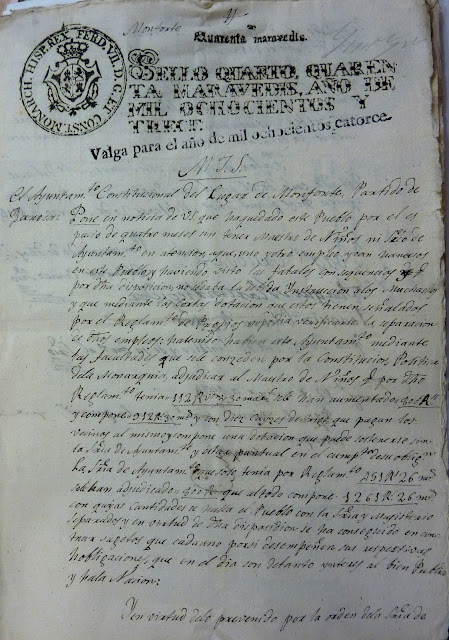 Monforte
Quarenta maravedis.
HISP. REX. FERD. VII. D. G. ET CONST. MONARCH.
SELLO QUARTO, QUAREN
TA MARAVEDIS, AÑO DE
MIL OCHOCIENTOS Y
TRECE.
Valga para el año de mil ochocientos catorce.
M. I. S.
El Ayuntam.to Constitucional del Lugar de Monforte, Partido de
Pone en noticia de VS. que ha quedado este Pueblo por el es
pacio de quatro meses sin tener Maestro de Niños ni
Ayuntam.to en atencion, a que, uno y otro empleo
en este Pueblo y haviendo visto las fatales consequencias
por dha disposicion no estaba la Ynstruccion a los Muchachos
y que mediante las cortas dotacion que estos tienen señalados
por el Reglam.to de Propios verificarse la separacion
de dhos empleos: ha tenido a bien este Ayuntam.to mediante
las facultades que se le conzeden por la Constitucion Politica
de la Monarquia, adjudicar al Maestro de Niños q. por dho
Reglam.to tenia 112 R. y 30 mar. se le han aumentado 800 R.
y compone 912 R. 30 m. y con diez que pagan los
vecinos al mismo, compone una dotacion que puede sostenerse sin
la de Ayuntam.to y estar puntual en el cump.to de su oblig.on
de Ayuntam.to que solo tenia por Reglam.to 451 R. 26 m.
se le han adjudicado 800 R. que al todo compone 1261 R. 26 m.
con cuyas Cantidades se halla el Pueblo con la y Magisterio
separados y en virtud de dha disposicion se ha conseguido en con
trar sugetos que cada uno por si desempeñen sus respectivas
obligaciones, que en el dia son de tanto ynteres al bien Publico
y a la Nacion:
Y en virtud de lo prevenido por la orden de la de